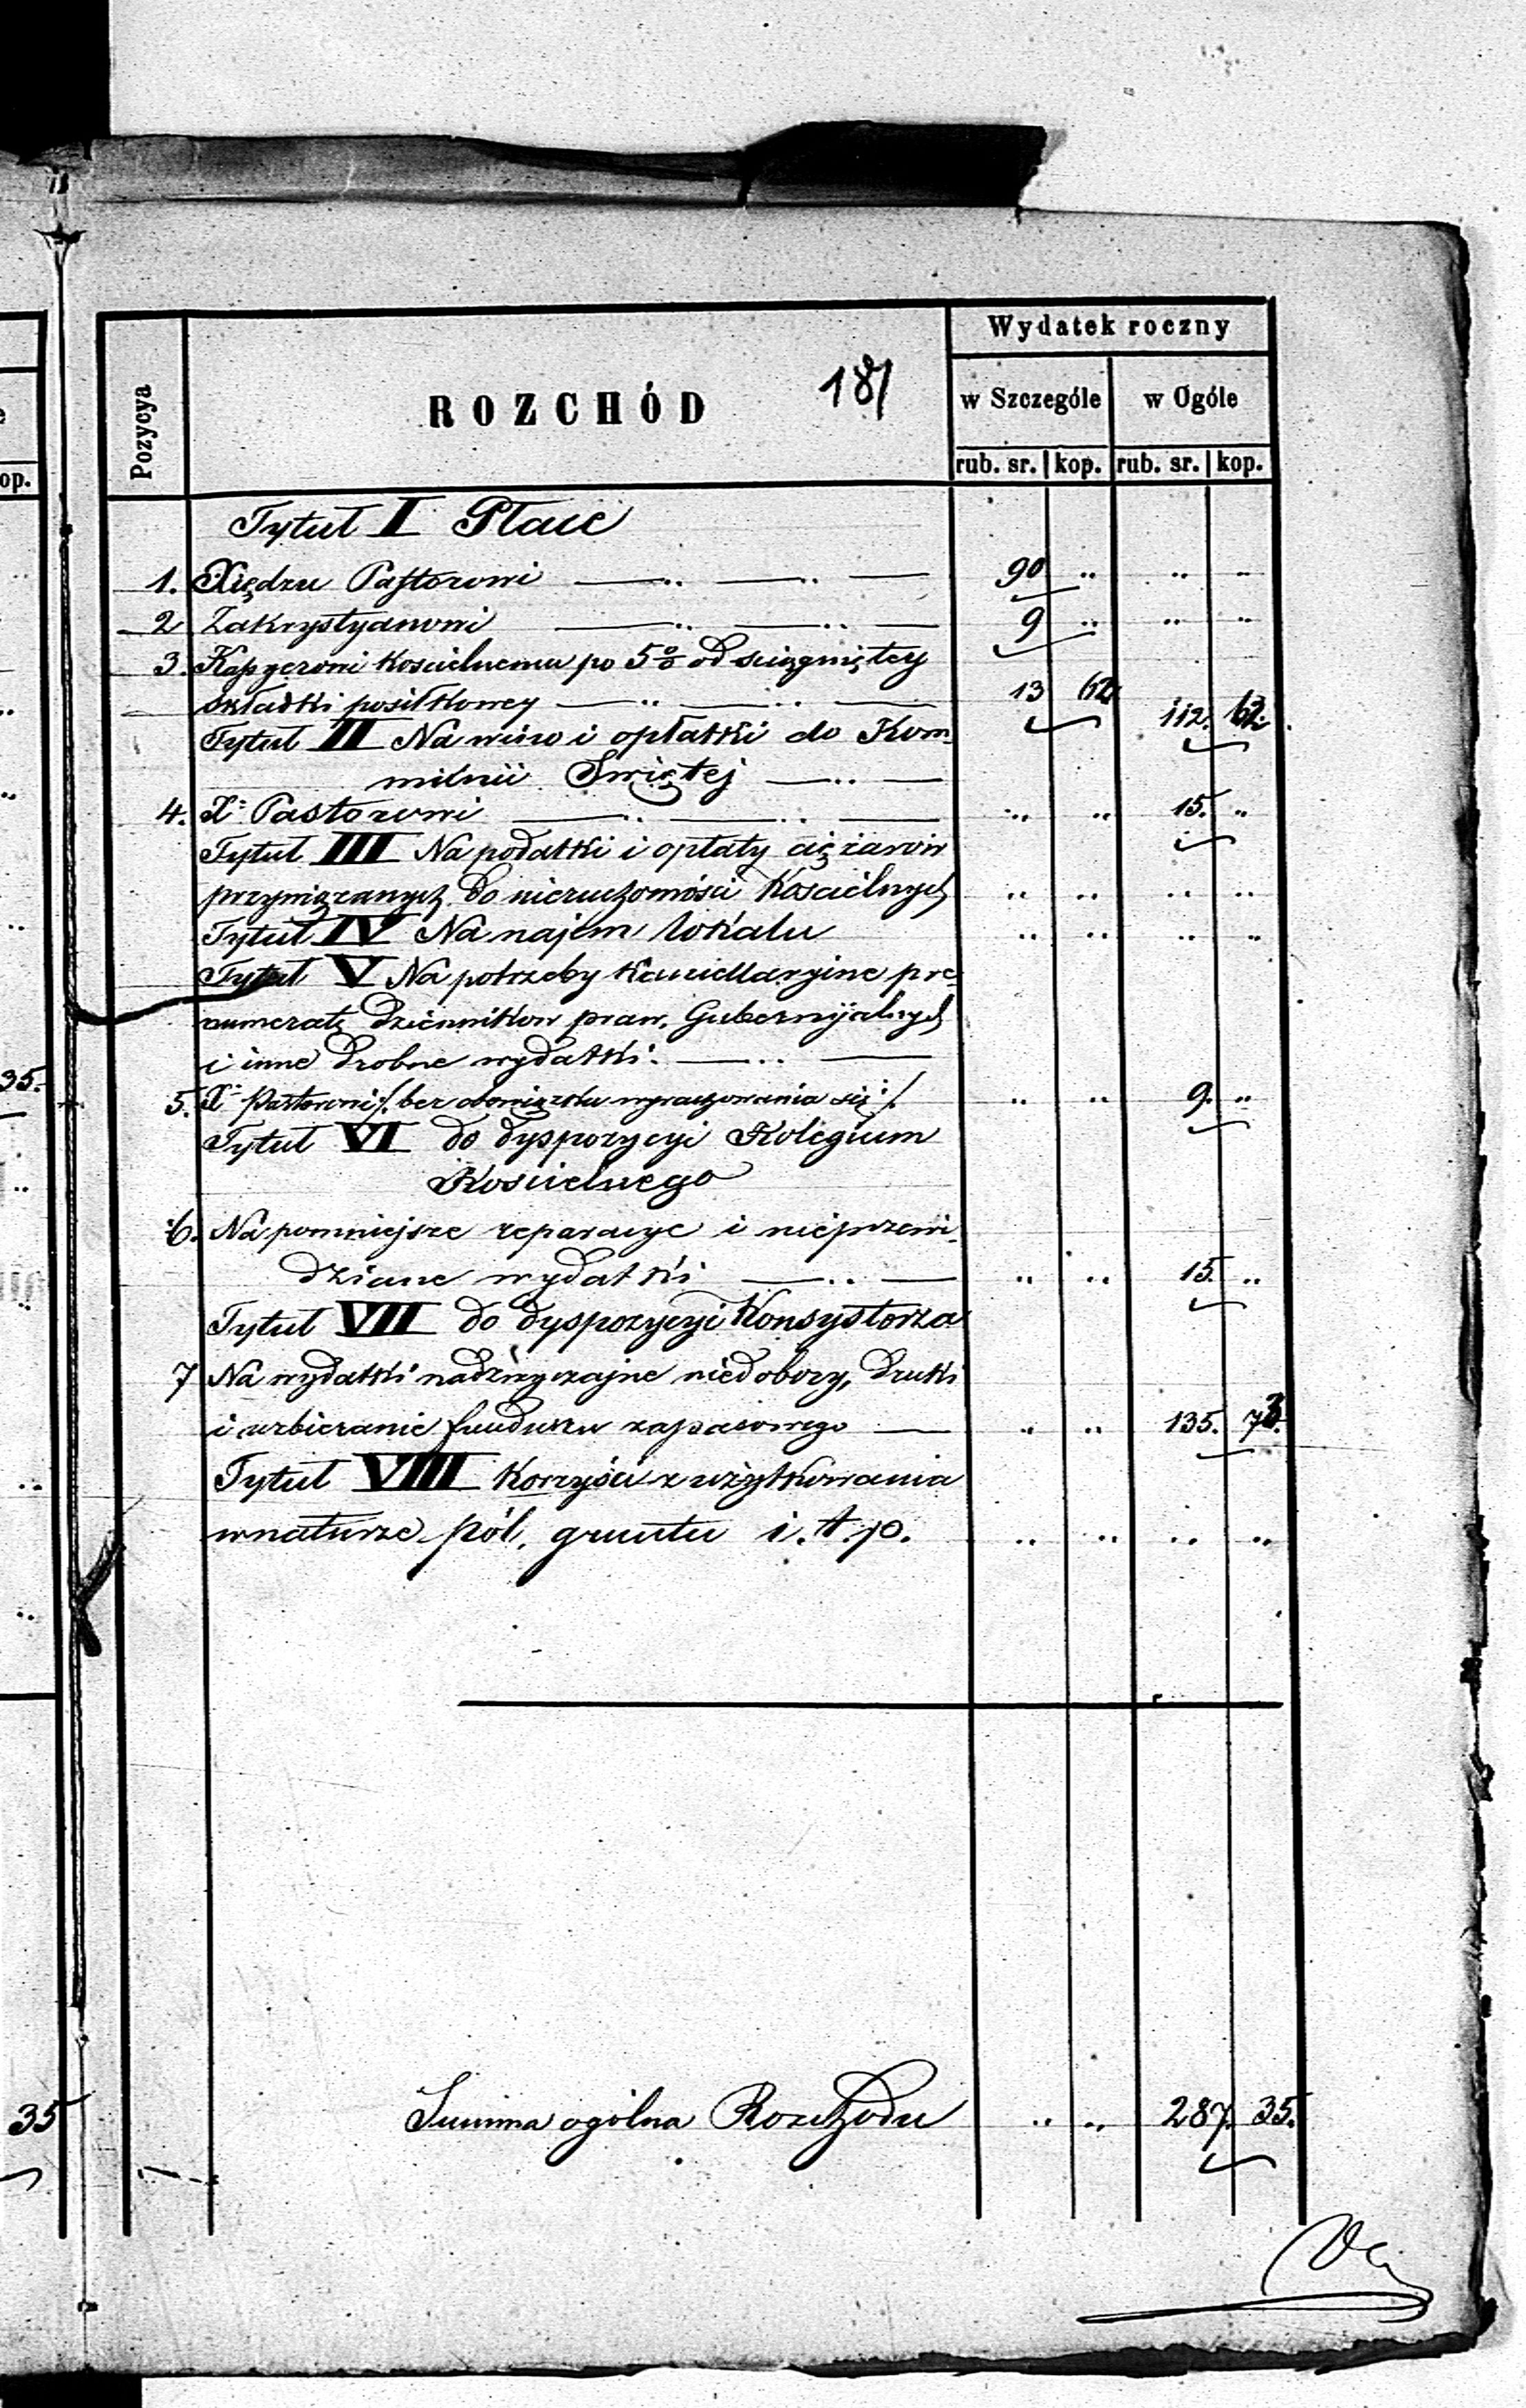 e
op.
35.
35
Wydatek roczny
Pozycya
ROZCHÓD
181
w Szczególe
w Ogóle
rub. sr. kop. rub. sr. kop.
Tytuł I Płace
1. Xiędzu Pastorowi — 90 " " "
2 Zakrystyanowi — 9 " " "
3. Kassyerowi Koscielnemu po 5% od sciągniętey
składki posiłkowey — 13 62 112. 62.
Tytuł II Na wino i opłatki do Kom-
milnii Swiętej —
4. X. Pastorowi — " " 15. "
Tytuł III Na podatki i opłaty ciężarow
przywiązanych do nieruchomości Koscielnych " " " "
Tytuł IV Na najem lokalu " " " "
Tytuł V Na potrzeby Kancellaryine pre-
numeratę dzienników praw, Gubernyjalnych
i inne drobne wydatki. —
5. X. Pastorowi /: bez obowiązku wyrachowania się :/ " " 9. "
Tytuł VI do dyspozycyi Kolegium
Koscielnego
6. Na pomniejsze reparacye i nieprzewi-
dziane wydatki — " " 15. "
Tytuł VII do dyspozycyi Konsystorza
7 Na wydatki nadzwyczajne niedobory, druki
i uzbieranie funduszu zapasowego — " " 135. 73.
Tytuł VIII Korzyści z użytkowania
wnaturze pól, gruntu i. t. p. " " " "
Summa ogólna Rozchodu " " 287. 35.